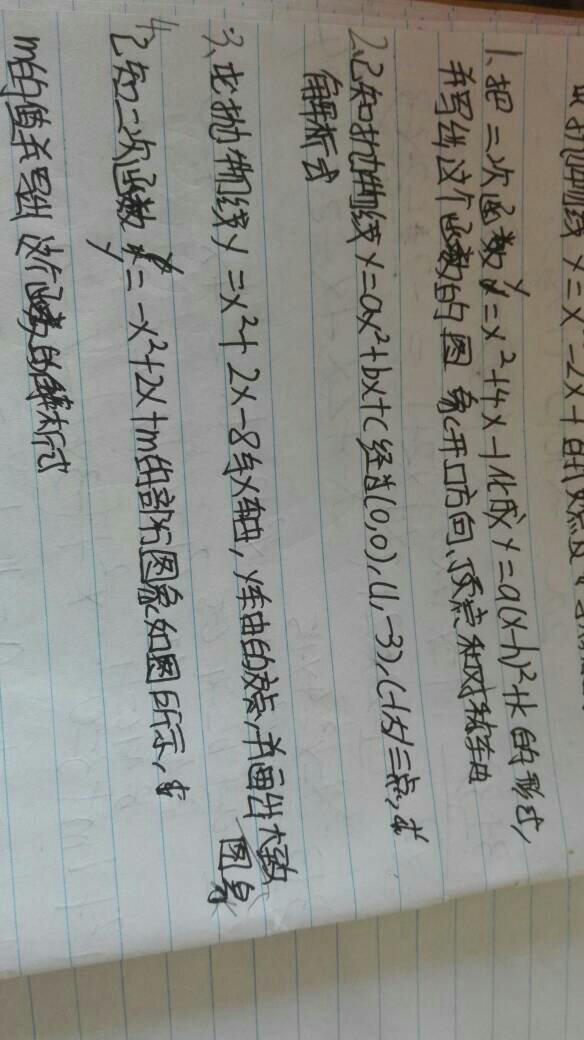 抛物线 y=x²-2x+ 的
1. 把二次函数y=x²+4x-1化成y=a(x-h)²+k的形式,
并写出这个函数的图象开口方向、顶点和对称轴
2.已知抛物线y=ax²+bx+c经过(0,0),(1,-3), 三点,求
解析式
3、求抛物线y=x²+2x-8与x轴,y轴的交点,并画出大致
图象
4.已知二次函数y=-x²+2x+m的部分图象如图所示,求
m的值并写出这个函数的解析式